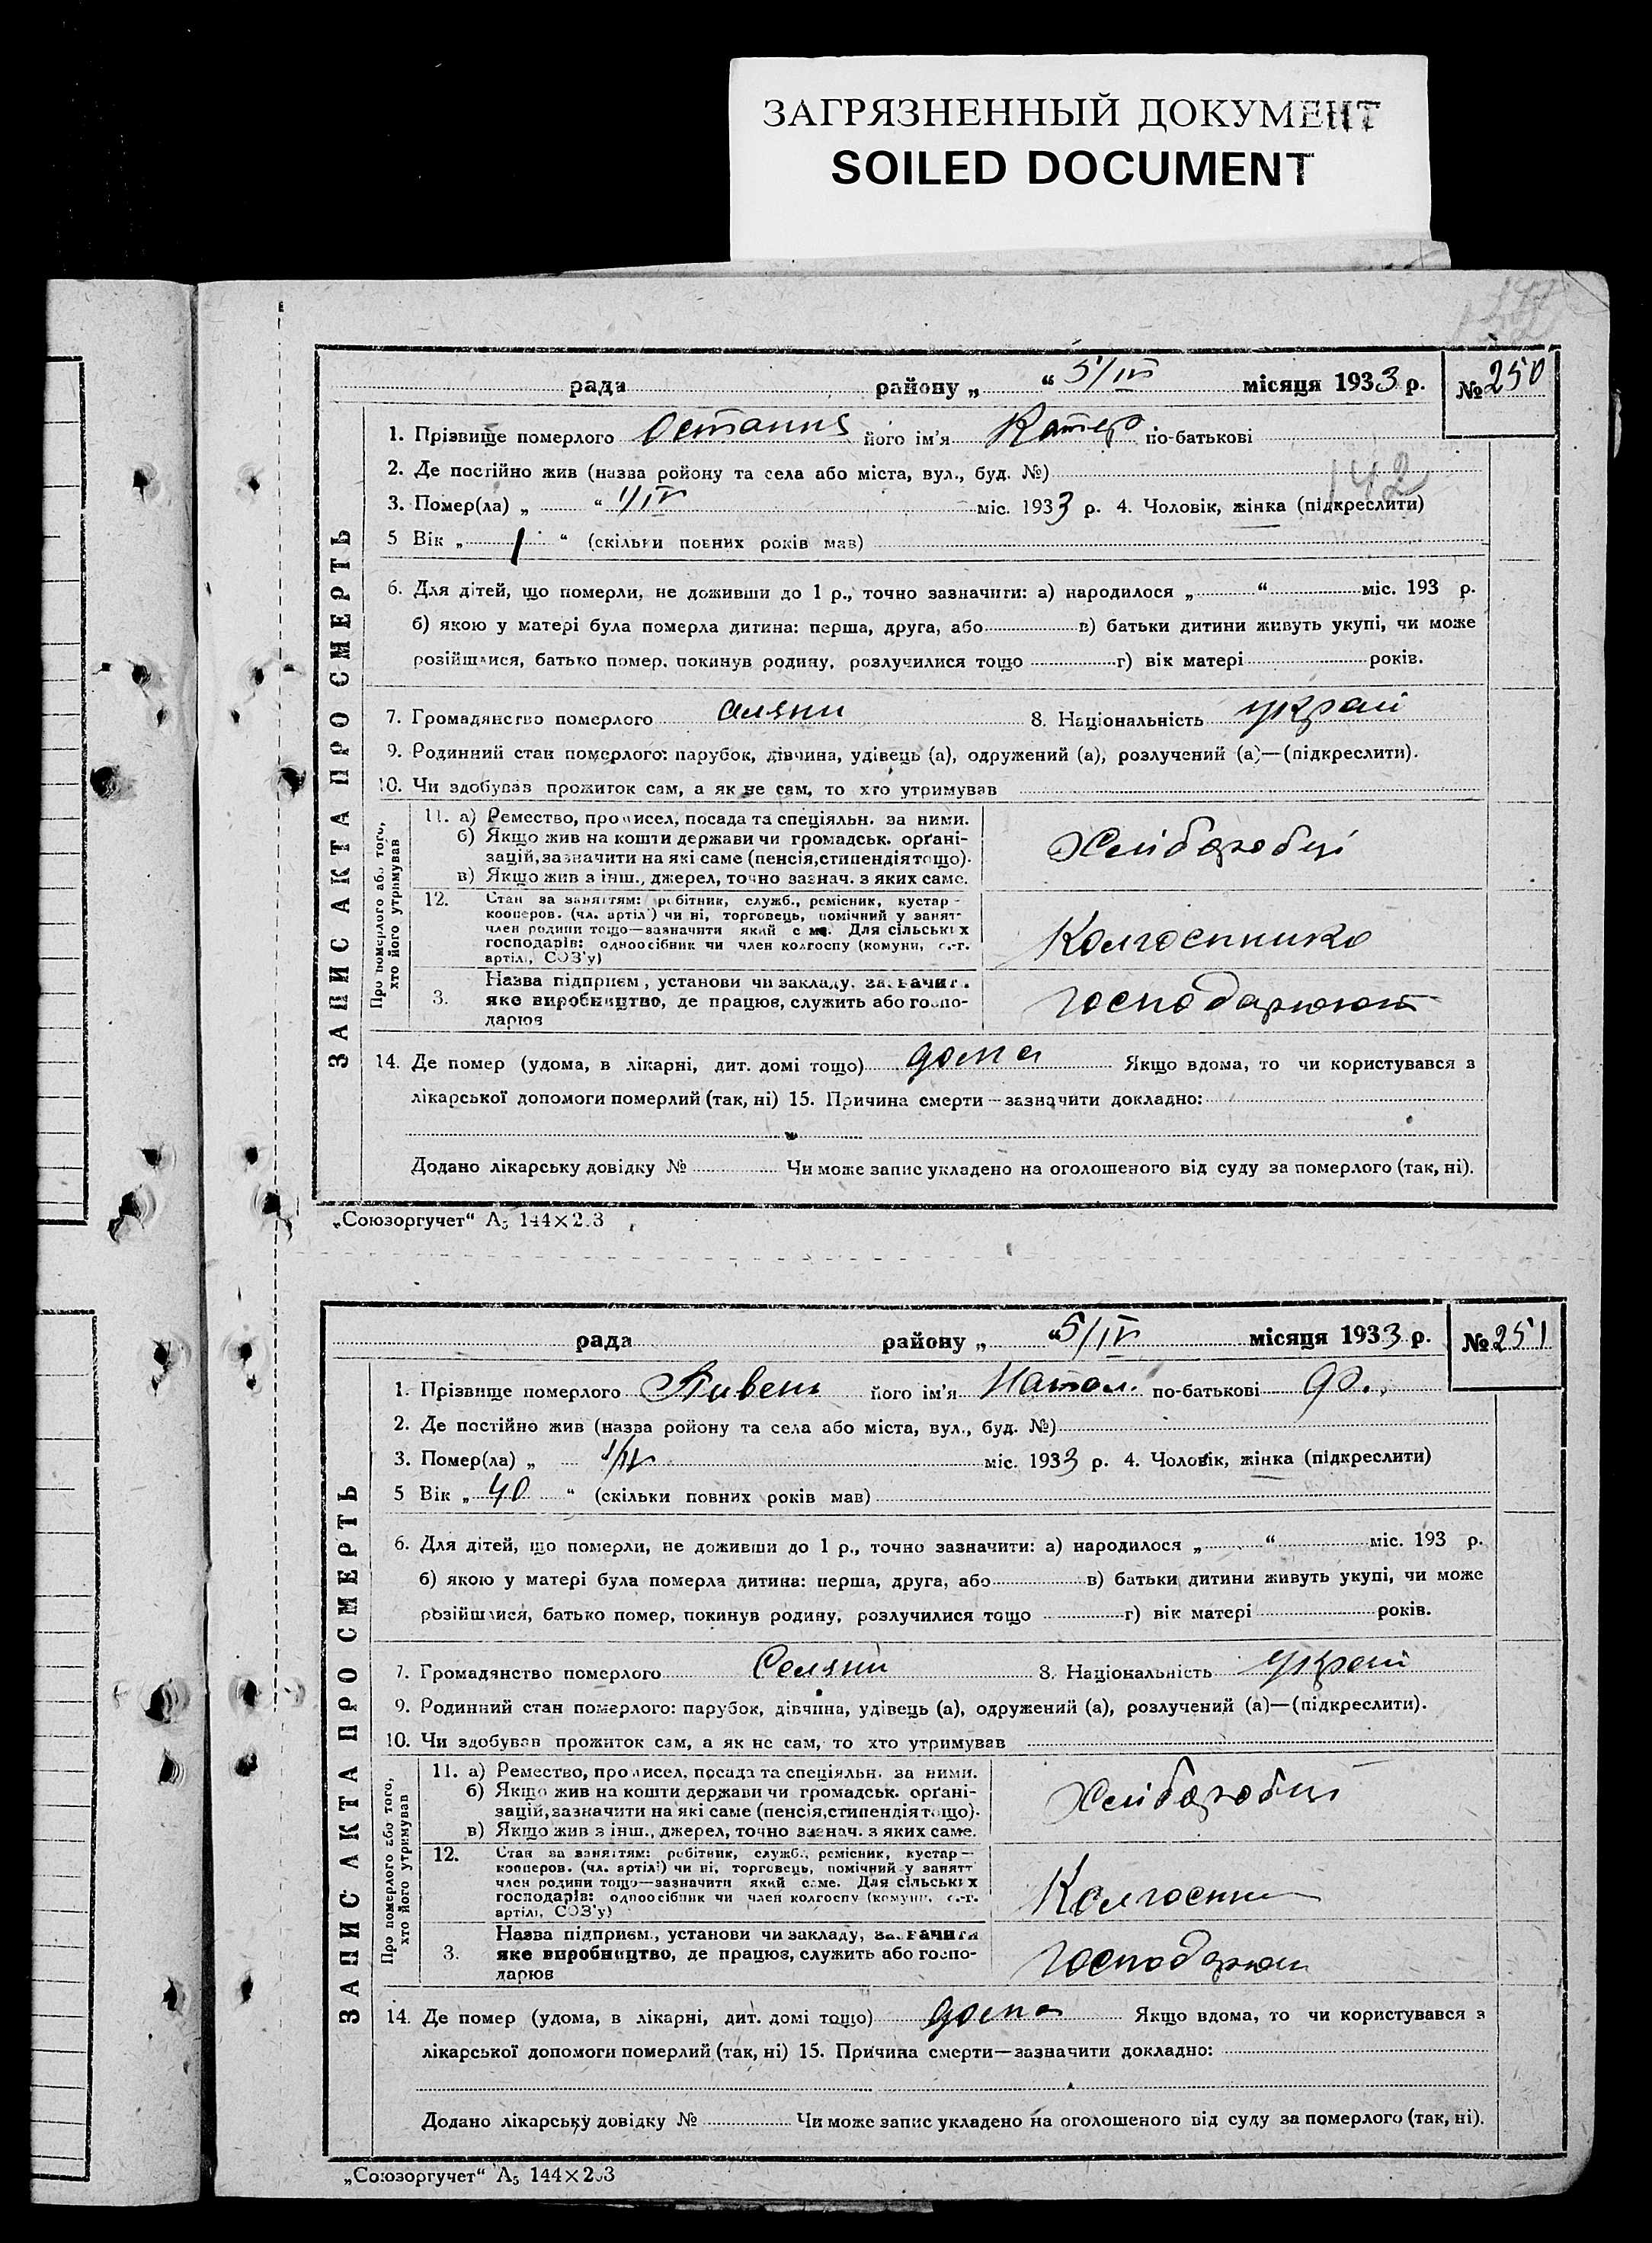 ЗАГРЯЗНЕННЫЙ ДОКУМЕНТ
SOILED DOCUMENT
142
рада району „ “ 5/IV місяця 1933 р. № 250
ЗАПИС АКТА ПРО СМЕРТЬ
1. Прізвище померлого його ім'я Катер по-батькові
2. Де постійно жив (назва ройону та села або міста, вул., буд. №)
3. Помер(ла) „ “ 1/IV міс. 1933 р. 4. Чоловік, жінка (підкреслити)
5 Вік „ 1 “ (скільки повних років мав)
6. Для дітей, що померли, не доживши до 1 р., точно зазначити: а) народилося „ “ міс. 193 р.
б) якою у матері була померла дитина: перша, друга, або в) батьки дитини живуть укупі, чи може
розійшлися, батько помер, покинув родину, розлучилися тощо г) вік матері років.
7. Громадянство померлого селяни 8. Національність украй
9. Родинний стан померлого: парубок, дівчина, удівець (а), одружений (а), розлучений (а)—(підкреслити).
10. Чи здобував прожиток сам, а як не сам, то хто утримував
Про померлого або того, хто його утримував
11. а) Ремество, промисел, посада та спеціяльн. за ними.
б) Якщо жив на кошти держави чи громадськ. орґані-
зацій, зазначити на які саме (пенсія, стипендія тощо).
в) Якщо жив з інш., джерел, точно зазнач. з яких саме.
Хліборобці
12. Стан за заняттям: робітник, служб., ремісник, кустар-
кооперов. (чл. артілі) чи ні, торговець, помічний у занят-
член родини тощо—зазначити який саме. Для сільських
господарів: одноосібник чи член колгоспу (комуни, с.-г.
артілі, СОЗ'у)
Колгоспники
3. Назва підприєм., установи чи закладу, зазначити
яке виробництво, де працює, служить або госпо-
дарює
господарюют
14. Де помер (удома, в лікарні, дит. домі тощо) дома Якщо вдома, то чи користувався з
лікарської допомоги померлий (так, ні) 15. Причина смерти—зазначити докладно:
Додано лікарську довідку № Чи може запис укладено на оголошеного від суду за померлого (так, ні).
„Союзоргучет“ А5 144×203
рада району „ “ 5/IV місяця 1933 р. № 251
ЗАПИС АКТА ПРО СМЕРТЬ
1. Прізвище померлого Пивень його ім'я Натал. по-батькові
2. Де постійно жив (назва ройону та села або міста, вул., буд. №)
3. Помер(ла) „ 1/IV міс. 1933 р. 4. Чоловік, жінка (підкреслити)
5 Вік „ 40 “ (скільки повних років мав)
6. Для дітей, що померли, не доживши до 1 р., точно зазначити: а) народилося „ “ міс. 193 р.
б) якою у матері була померла дитина: перша, друга, або в) батьки дитини живуть укупі, чи може
розійшлися, батько помер, покинув родину, розлучилися тощо г) вік матері років.
7. Громадянство померлого Селяни 8. Національність украй
9. Родинний стан померлого: парубок, дівчина, удівець (а), одружений (а), розлучений (а)—(підкреслити).
10. Чи здобував прожиток сам, а як не сам, то хто утримував
Про померлого або того, хто його утримував
11. а) Ремество, промисел, посада та спеціяльн. за ними.
б) Якщо жив на кошти держави чи громадськ. орґані-
зацій, зазначити на які саме (пенсія, стипендія тощо).
в) Якщо жив з інш., джерел, точно зазнач. з яких саме.
Хліборобці
12. Стан за заняттям: робітник, служб., ремісник, кустар—
кооперов. (чл. артілі) чи ні, торговець, помічний у занятт
член родини тощо—зазначити який саме. Для сільських
господарів: одноосібник чи член колгоспу (комуни, с.-г.
артілі, СОЗ'у)
Колгоспни
3. Назва підприєм., установи чи закладу, зазначити
яке виробництво, де працює, служить або госпо-
дарює
господарюю
14. Де помер (удома, в лікарні, дит. домі тощо) дома Якщо вдома, то чи користувався з
лікарської допомоги померлий (так, ні) 15. Причина смерти—зазначити докладно:
Додано лікарську довідку № Чи може запис укладено на оголошеного від суду за померлого (так, ні).
„Союзоргучет“ А5 144×203